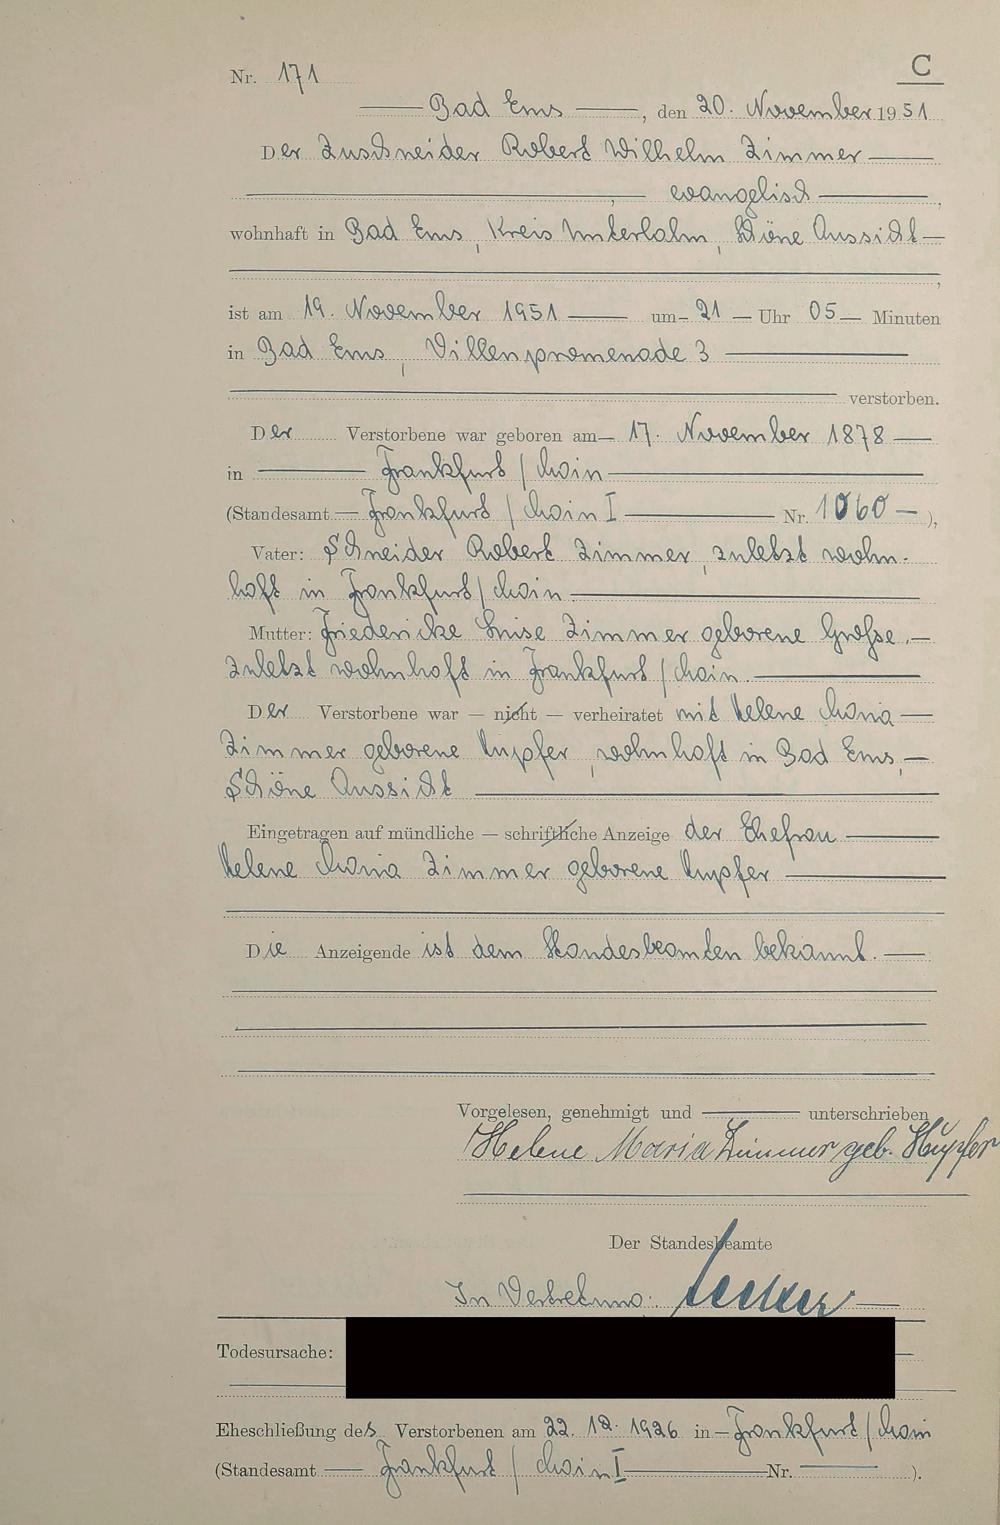 Nr. 171
C
Bad Ems, den 20. November 1951
Der Zuschneider Robert Wilhelm Zimmer
, evangelisch,
wohnhaft in Bad Ems, Kreis Unterlahn, Schöne Aussicht
,
ist am 19. November 1951 um 21 Uhr 05 Minuten
in Bad Ems, Villenpromenade 3
verstorben.
Der Verstorbene war geboren am 17. November 1878
in Frankfurt / Main
(Standesamt Frankfurt / Main I Nr. 1060 ),
Vater: Schneider Robert Zimmer, zuletzt wohn-
haft in Frankfurt / Main.
Mutter: Friedericke Luise Zimmer geborene Grosse,
zuletzt wohnhaft in Frankfurt / Main.
Der Verstorbene war — nicht — verheiratet mit Helene Maria
Zimmer geborene Hupfer, wohnhaft in Bad Ems,
Schöne Aussicht
Eingetragen auf mündliche — schriftliche Anzeige der Ehefrau
Helene Maria Zimmer geborene Hupfer
Die Anzeigende ist dem Standesbeamten bekannt.
Vorgelesen, genehmigt und unterschrieben
Helene Maria Zimmer geb. Hupfer
Der Standesbeamte
In Vertretung:
Todesursache:
Eheschließung des Verstorbenen am 22. 12. 1926 in Frankfurt / Main
(Standesamt Frankfurt / Main I Nr. ).